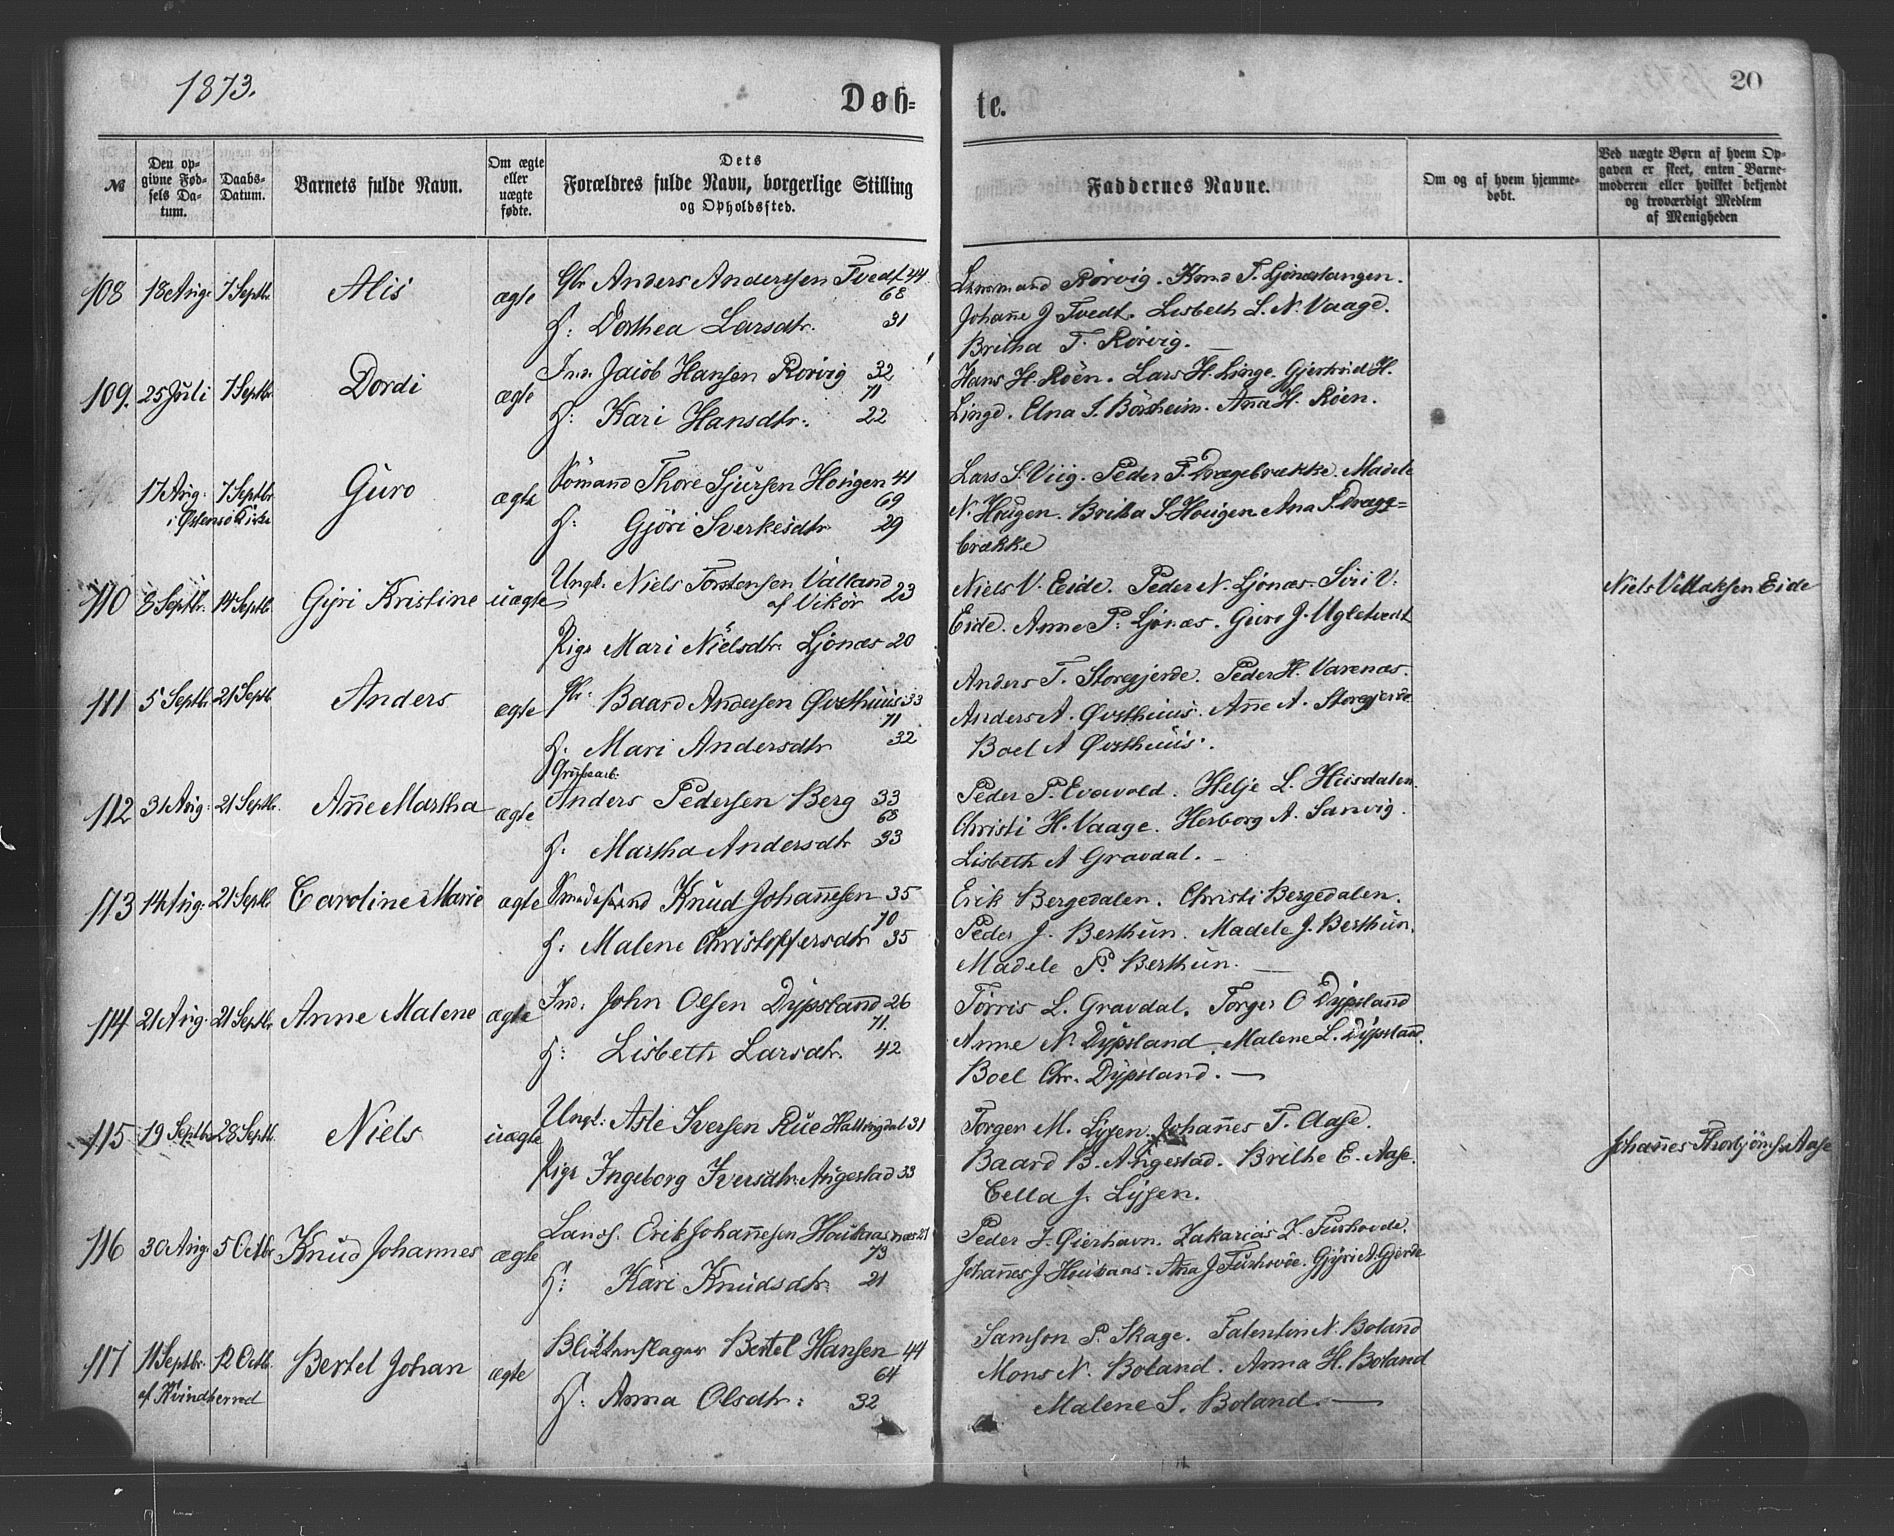 1873.
Døb-
te.
20
№
Den op-
givne Fød-
sels Da-
tum.
Daabs-
Datum.
Barnets fulde Navn.
Om ægte
eller
uægte
fødte.
Dets
Forældres fulde Navn, borgerlige Stilling
og Opholdssted.
Faddernes Navne.
Om og af hvem hjemme-
døbt.
Ved uægte Børn af hvem Op-
gaven er skeet, enten Barne-
moderen eller hvilket bekjendt
og troværdigt Medlem
af Menigheden
108 18 Aug. 7 Septbr. Alis ægte Gbr Anders Anderssen Tvedt 44
68
H: Dorthea Larsdtr. 31
Lensmand Rørvig. Knud T. Ljonestangen.
Johañe J Tvedt. Lisbeth L. N. Vaage.
Britha T. Rørvig. —
109. 25 Juli 7 Septbr. Dordi ægte Ind. Jacob Hansen Rørvig 32
71
H: Kari Hansdtr. 22
Hans H. Röen. Lars H. Linge. Gjertrud H.
Linge. Elna S. Börsheim. Aña H. Röen.
17 Aug. 7 Septbr Guro ægte Sömand Thore Sjursen Hougen 41
i Østensö Kirke
69
H: Gjöri Sverkesdtr 29
Lars S. Viig. Peder T. Dragebrække. Madele
N. Haugen. Britha S. Hougen. Ana P. Drage=
brække
110 8 Septbr. 14 Septb Gyri Kristine uægte Ungk. Niels Torstensen Valland
af Vikör 23
Pige Mari Nielsdtr. Ljönæs 20
Niels V. Eide. Peder N. Ljönæs. Siri V.
Eide. Anne P. Ljönæs. Guro J. Ugletvedt
Niels Villaksen Eide
111 5 Septbr 21 Septb Anders ægte Gbr: Baard Andersen Øvsthuus 33
71
H. Mari Andersdtr 32
Anders T. Storegjerde. Peder H. Varenæs.
Anders A. Øvsthuus. Añe A. Storegjerde
Boel A Øvsthuus.
112 31 Aug. 21 Septb. Añe Martha ægte Grubearb.
Anders Pedersen Berg 33
68
H. Martha Andersdtr 33
Peder P. Evavold. Helje L. Huusdalen.
Christi H. Vaage. Herborg A. Sanvig.
Lisbeth A Gravdal. —
113 14 Aug. 21 Septb. Caroline Marie ægte Smedesvend Knud Johañesen 35
70
H. Malene Christoffersdtr 35
Erik Bergedalen. Christi Bergedalen.
Peder J. Berthun. Madele J. Berthun.
Madele P. Berthun. —
114 21 Aug. 21 Septbr Anne Malene ægte Ind. John Olsen Dypsland 26
71.
H: Lisbeth Larsdtr. 42
Torris L. Gravdal. Torger O Dypsland
Anne N. Dypsland. Malene L. Dypsland.
Boel Chr. Dypsland. —
115 19 Septbr 28 Septb. Niels uægte Ungk. Asle Iversen Rue Hallingdal 31
Pige Ingeborg Iversdtr. Augestad 33
Torger M. Lysen. Johañes T. Aase.
Baard B. Augestad. Brithe E. Aase.
Cella J. Lysen.
Johañes Thorbjörns. Aase
116 30 Aug. 5 Octbr Knud Johannes ægte Lands. Erik Johañesen Houkaasnæs 27
73
H: Kari Knudsdtr. 21
Peder J. Øierhavn. Zakarias Z. Furhovde.
Johañes J. Houkaas. Aña J. Furhovde. Gjyri A. Gjerde
117 11 Septbr. 12 Octb. Bertel Johan ægte Blikkenslager Bertel Hansen 44
af Kvindherred
64
H. Anna Olsdtr. 32
Samson P. Skage. Talentin N. Boland
Mons N. Boland. Anna H. Boland
Malene S. Boland. —